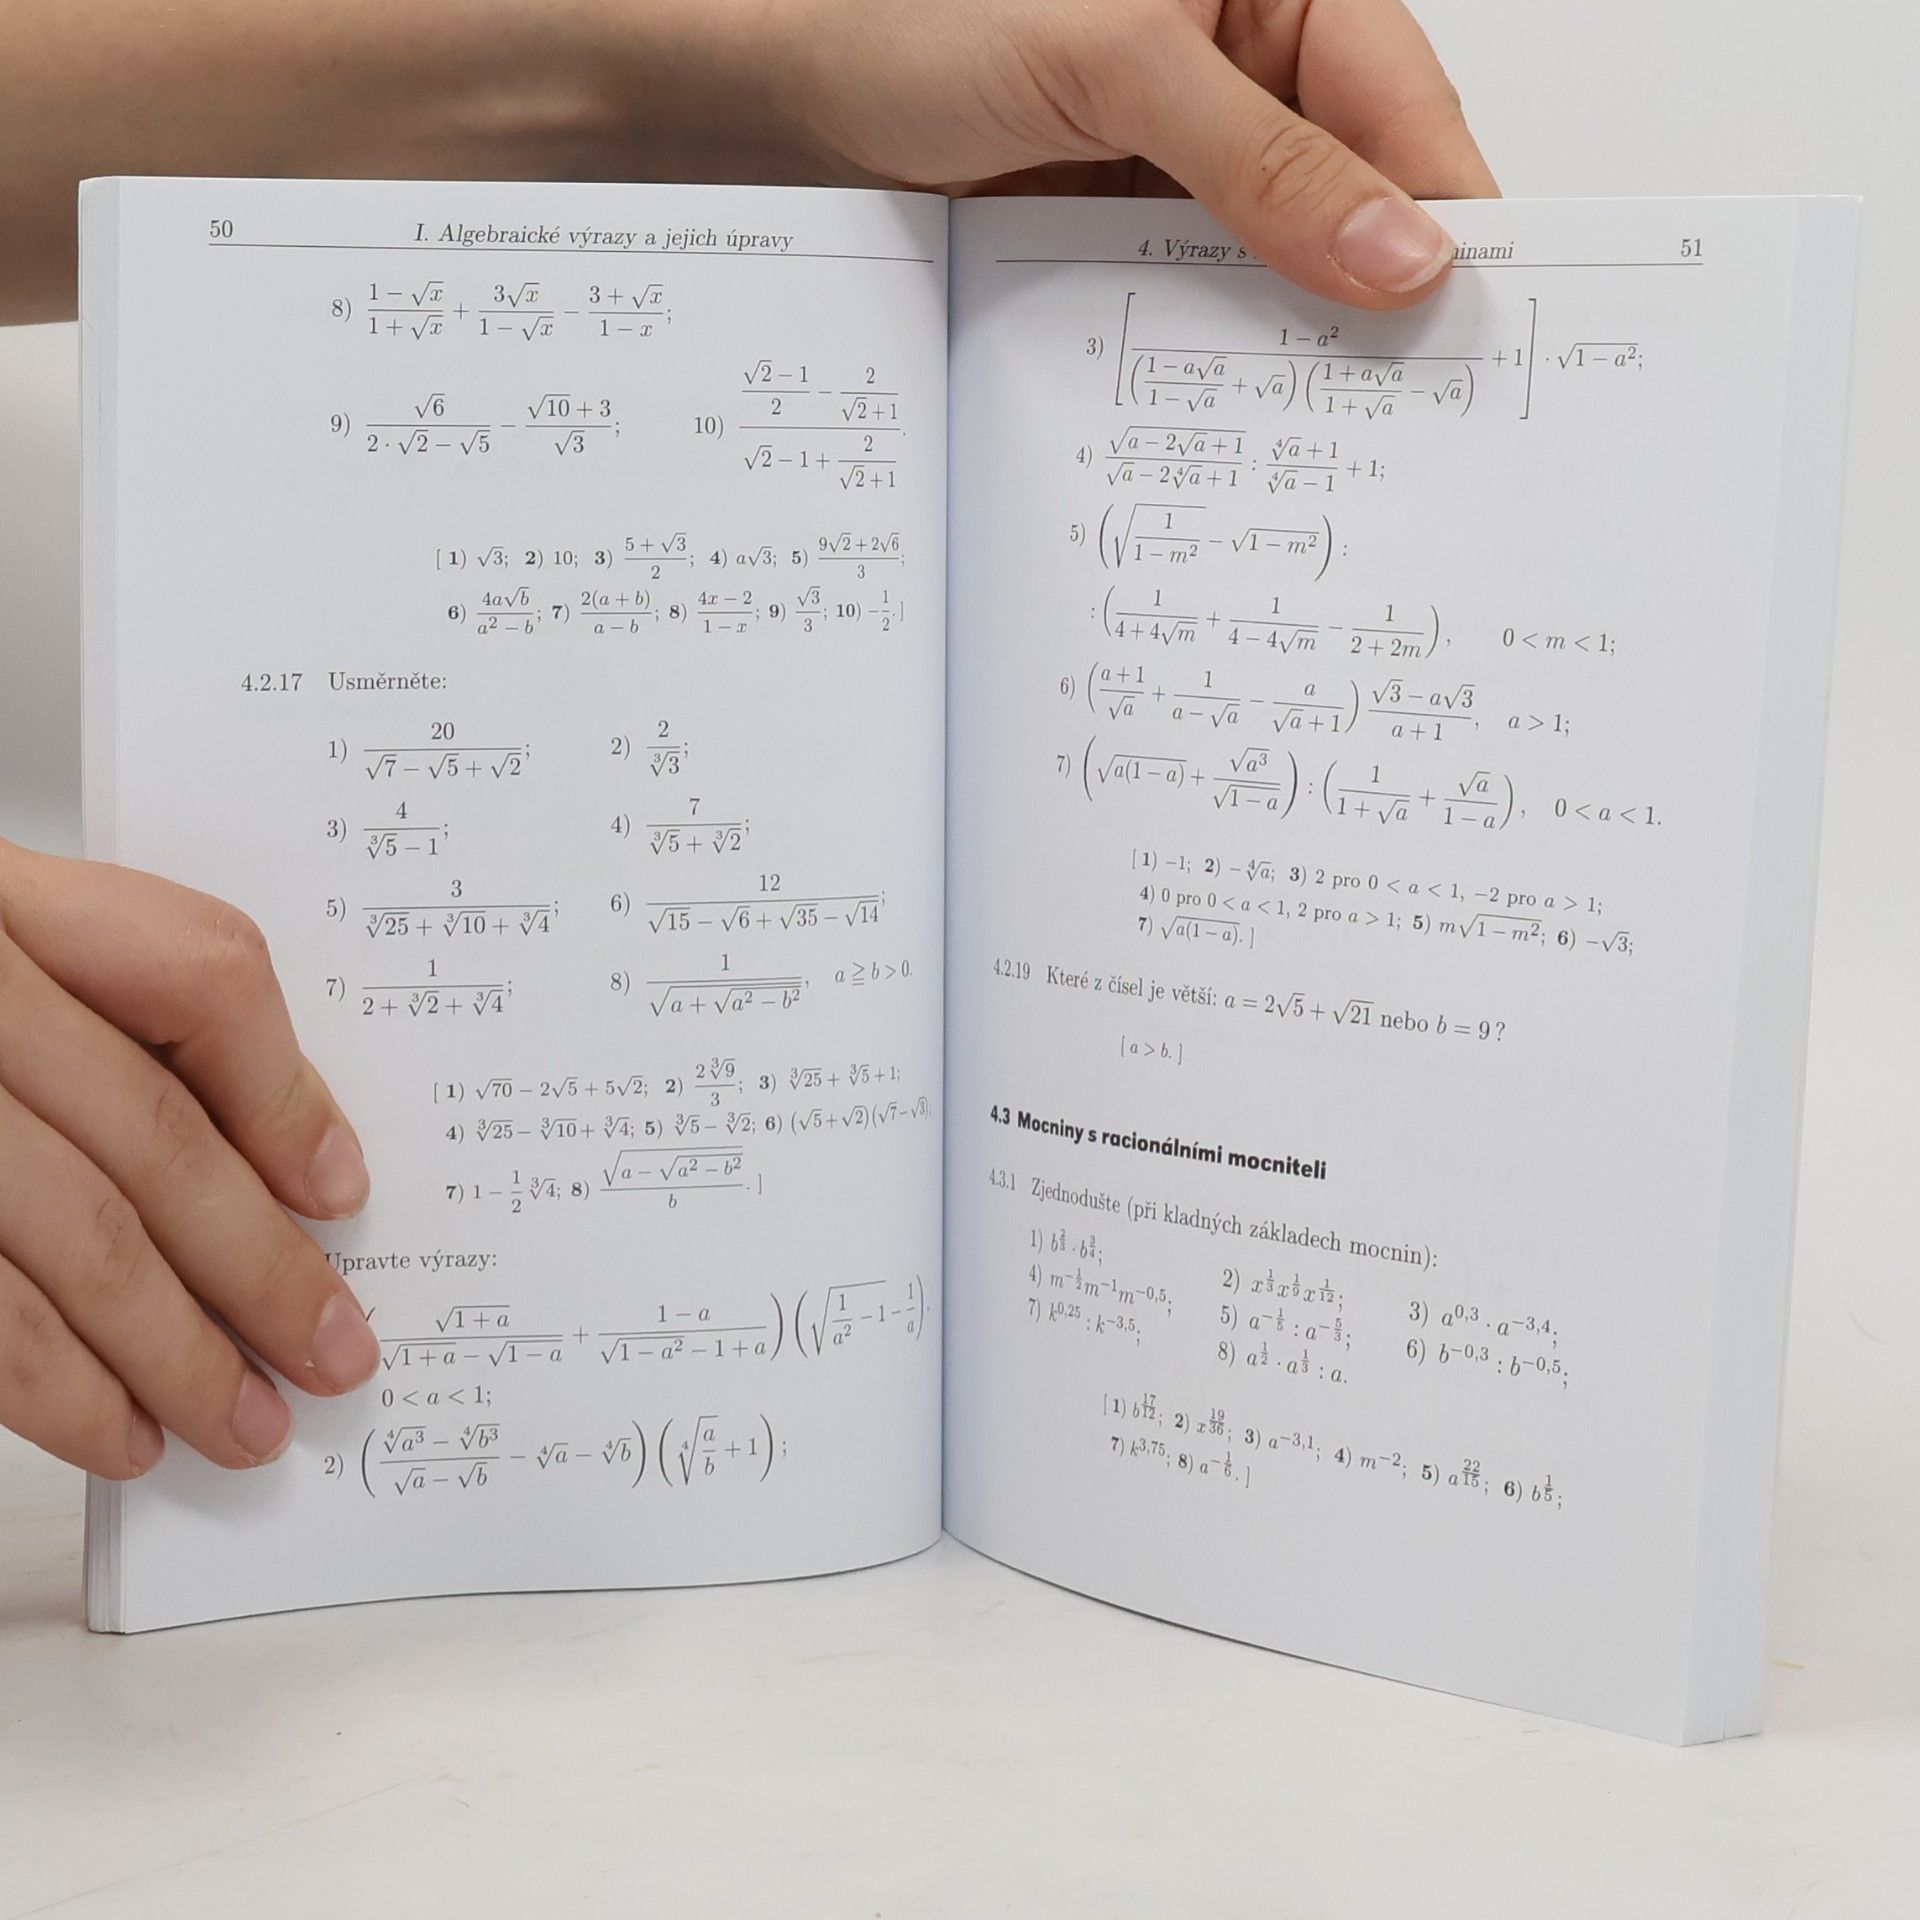 50 I. Algebraické výrazy a jejich úpravy
8) \frac{1-\sqrt{x}}{1+\sqrt{x}} + \frac{3\sqrt{x}}{1-\sqrt{x}} - \frac{3+\sqrt{x}}{1-x};
9) \frac{\sqrt{6}}{2\cdot\sqrt{2}-\sqrt{5}} - \frac{\sqrt{10}+3}{\sqrt{3}}; 10) \frac{\frac{\sqrt{2}-1}{2}-\frac{2}{\sqrt{2}+1}}{\sqrt{2}-1+\frac{2}{\sqrt{2}+1}}.
[ 1) \sqrt{3}; 2) 10; 3) \frac{5+\sqrt{3}}{2}; 4) a\sqrt{3}; 5) \frac{9\sqrt{2}+2\sqrt{6}}{3};
6) \frac{4a\sqrt{b}}{a^2-b}; 7) \frac{2(a+b)}{a-b}; 8) \frac{4x-2}{1-x}; 9) \frac{\sqrt{3}}{3}; 10) -\frac{1}{2}. ]
4.2.17 Usměrněte:
1) \frac{20}{\sqrt{7}-\sqrt{5}+\sqrt{2}}; 2) \frac{2}{\sqrt[3]{3}};
3) \frac{4}{\sqrt[3]{5}-1}; 4) \frac{7}{\sqrt[3]{5}+\sqrt[3]{2}};
5) \frac{3}{\sqrt[3]{25}+\sqrt[3]{10}+\sqrt[3]{4}}; 6) \frac{12}{\sqrt{15}-\sqrt{6}+\sqrt{35}-\sqrt{14}};
7) \frac{1}{2+\sqrt[3]{2}+\sqrt[3]{4}}; 8) \frac{1}{\sqrt{a+\sqrt{a^2-b^2}}}, a ≧ b > 0.
[ 1) \sqrt{70}-2\sqrt{5}+5\sqrt{2}; 2) \frac{2\sqrt[3]{9}}{3}; 3) \sqrt[3]{25}+\sqrt[3]{5}+1;
4) \sqrt[3]{25}-\sqrt[3]{10}+\sqrt[3]{4}; 5) \sqrt[3]{5}-\sqrt[3]{2}; 6) (\sqrt{5}+\sqrt{2})(\sqrt{7}-\sqrt{3});
7) 1-\frac{1}{2}\sqrt[3]{4}; 8) \frac{\sqrt{a-\sqrt{a^2-b^2}}}{b}. ]
Upravte výrazy:
\left(\frac{\sqrt{1+a}}{\sqrt{1+a}-\sqrt{1-a}}+\frac{1-a}{\sqrt{1-a^2}-1+a}\right)\left(\sqrt{\frac{1}{a^2}-1}-\frac{1}{a}\right),
0 < a < 1;
2) \left(\frac{\sqrt[4]{a^3}-\sqrt[4]{b^3}}{\sqrt{a}-\sqrt{b}}-\sqrt[4]{a}-\sqrt[4]{b}\right)\left(\sqrt[4]{\frac{a}{b}}+1\right);
4. Výrazy s 51
3) \left[\frac{1-a^2}{\left(\frac{1-a\sqrt{a}}{1-\sqrt{a}}+\sqrt{a}\right)\left(\frac{1+a\sqrt{a}}{1+\sqrt{a}}-\sqrt{a}\right)}+1\right]\cdot\sqrt{1-a^2};
4) \frac{\sqrt{a-2\sqrt{a}+1}}{\sqrt{a}-2\sqrt[4]{a}+1} : \frac{\sqrt[4]{a}+1}{\sqrt[4]{a}-1}+1;
5) \left(\sqrt{\frac{1}{1-m^2}}-\sqrt{1-m^2}\right) :
: \left(\frac{1}{4+4\sqrt{m}}+\frac{1}{4-4\sqrt{m}}-\frac{1}{2+2m}\right), 0 < m < 1;
6) \left(\frac{a+1}{\sqrt{a}}+\frac{1}{a-\sqrt{a}}-\frac{a}{\sqrt{a}+1}\right)\frac{\sqrt{3}-a\sqrt{3}}{a+1}, a > 1;
7) \left(\sqrt{a(1-a)}+\frac{\sqrt{a^3}}{\sqrt{1-a}}\right) : \left(\frac{1}{1+\sqrt{a}}+\frac{\sqrt{a}}{1-a}\right), 0 < a < 1.
[ 1) -1; 2) -\sqrt[4]{a}; 3) 2 pro 0 < a < 1, -2 pro a > 1;
4) 0 pro 0 < a < 1, 2 pro a > 1; 5) m\sqrt{1-m^2}; 6) -\sqrt{3};
7) \sqrt{a(1-a)}. ]
4.2.19 Které z čísel je větší: a = 2\sqrt{5}+\sqrt{21} nebo b = 9 ?
[ a > b. ]
4.3 Mocniny s racionálními mocniteli
4.3.1 Zjednodušte (při kladných základech mocnin):
1) b^{\frac{2}{3}} \cdot b^{\frac{3}{4}}; 2) x^{\frac{1}{3}}x^{\frac{1}{9}}x^{\frac{1}{12}}; 3) a^{0,3} \cdot a^{-3,4};
4) m^{-\frac{1}{2}}m^{-1}m^{-0,5}; 5) a^{-\frac{1}{5}} : a^{-\frac{5}{3}}; 6) b^{-0,3} : b^{-0,5};
7) k^{0,25} : k^{-3,5}; 8) a^{\frac{1}{2}} \cdot a^{\frac{1}{3}} : a.
[ 1) b^{\frac{17}{12}}; 2) x^{\frac{19}{36}}; 3) a^{-3,1}; 4) m^{-2}; 5) a^{\frac{22}{15}}; 6) b^{\frac{1}{5}};
7) k^{3,75}; 8) a^{-\frac{1}{6}}. ]